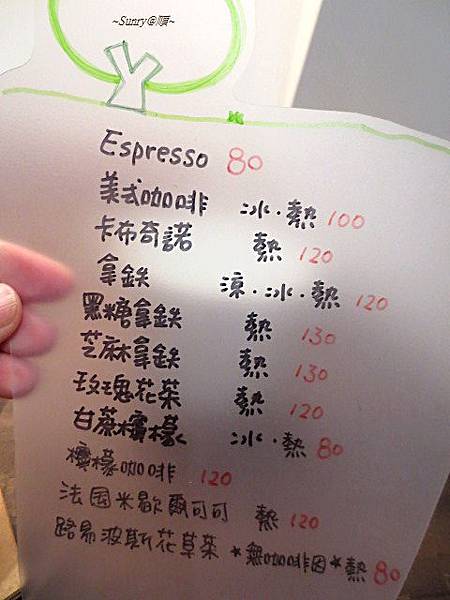 ~Sunry@順~
Espresso 80
美式咖啡 冰·熱 100
卡布奇諾 熱 120
拿鉄 涼·冰·熱 120
黑糖拿鉄 熱 130
芝麻拿鉄 熱 130
玫瑰花茶 熱 120
甘蔗檸檬 冰·熱 80
檸檬咖啡 120
法国米歇爾可可 熱 120
路易波斯花草茶 *無咖啡因*熱 80